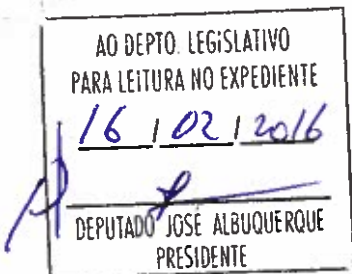 AO DEPTO. LEGISLATIVO
PARA LEITURA NO EXPEDIENTE
16 / 02 / 2016
DEPUTADO JOSÉ ALBUQUERQUE
PRESIDENTE